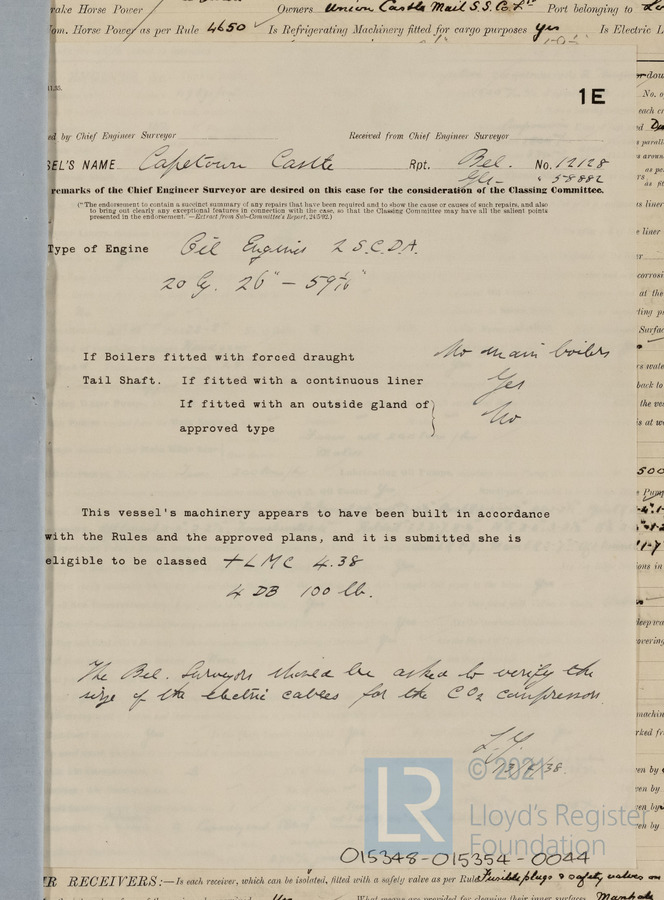 rake Horse Power Owners Union Castle Mail S.S. Co. Ltd Port belonging to
om. Horse Power as per Rule 4650 Is Refrigerating Machinery fitted for cargo purposes yes Is Electric L
1E
ed by Chief Engineer Surveyor Received from Chief Engineer Surveyor
SEL'S NAME Capetown Castle Rpt. Bel. No. 12128
Gls- " 58882
remarks of the Chief Engineer Surveyor are desired on this case for the consideration of the Classing Committee.
("The endorsement to contain a succinct summary of any repairs that have been required and to show the cause or causes of such repairs, and also
to bring out clearly any exceptional features in connection with the case, so that the Classing Committee may have all the salient points
presented in the endorsement."—Extract from Sub-Committee's Report, 24/3/92.)
Type of Engine Oil Engines 2 S.C.D.A.
20 Cy. 26" – 59 1/16"
If Boilers fitted with forced draught No main boilers
Tail Shaft. If fitted with a continuous liner Yes
If fitted with an outside gland of} No
approved type
This vessel's machinery appears to have been built in accordance
with the Rules and the approved plans, and it is submitted she is
eligible to be classed +LMC 4.38
4 DB 100 lb.
The Bel. Surveyors should be asked to verify the
size of the electric cables for the CO2 compressor.
© 2021
LR
Lloyd's Register
Foundation
015348-015354-0044
R RECEIVERS:—Is each receiver, which can be isolated, fitted with a safety valve as per Rule Fusible plugs & safety valves on
What means are provided for cleaning their inner surfaces